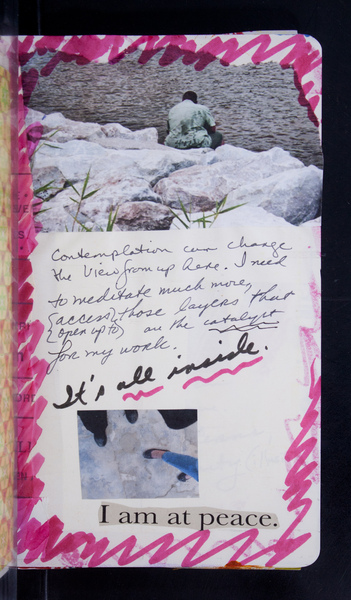 Contemplation can change
the view from up here. I need
to meditate much more,
{access} those layers that
{open up to} are the catalyst
for my work.
It's all inside.
I am at peace.